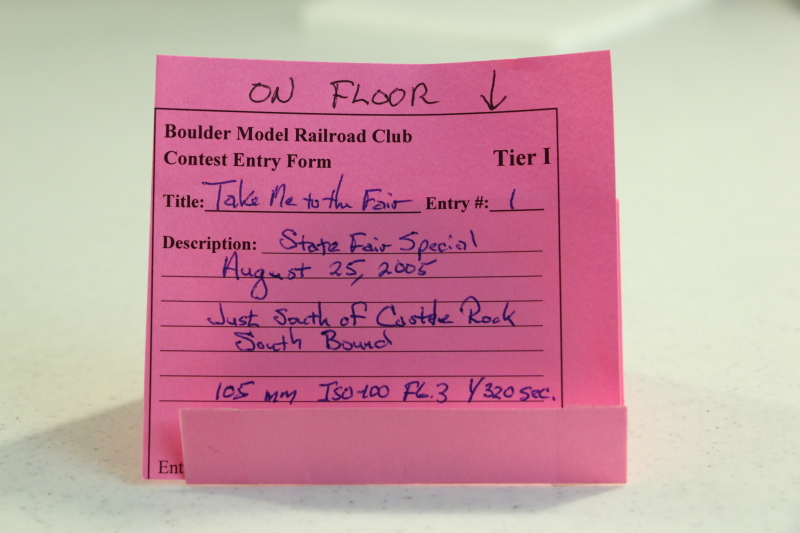 ON FLOOR ↓
Boulder Model Railroad Club
Contest Entry Form Tier I
Title: Take Me to the Fair Entry #: 1
Description: State Fair Special
August 25, 2005
Just South of Castle Rock
South Bound
105 mm ISO 100 F6.3 1/320 sec.
Ent